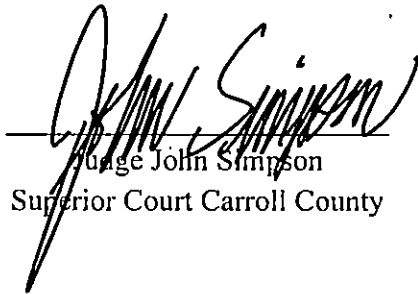 John Simpson
Judge John Simpson
Superior Court Carroll County